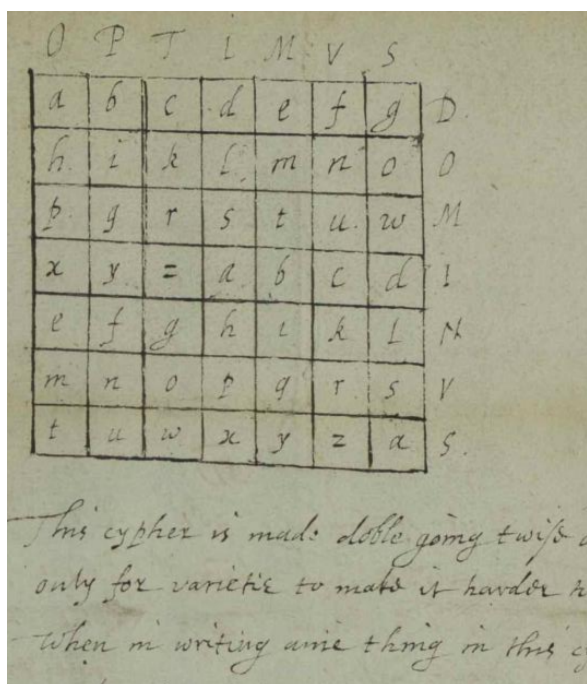 O P T I M V S
a b c d e f g D
h i k l m n o O
p q r s t u w M
x y z a b c d I
e f g h i k l N
m n o p q r s V
t u w x y z a S.
This cypher is made doble going twise
only for varietie to make it harder
When in writing anie thing in this